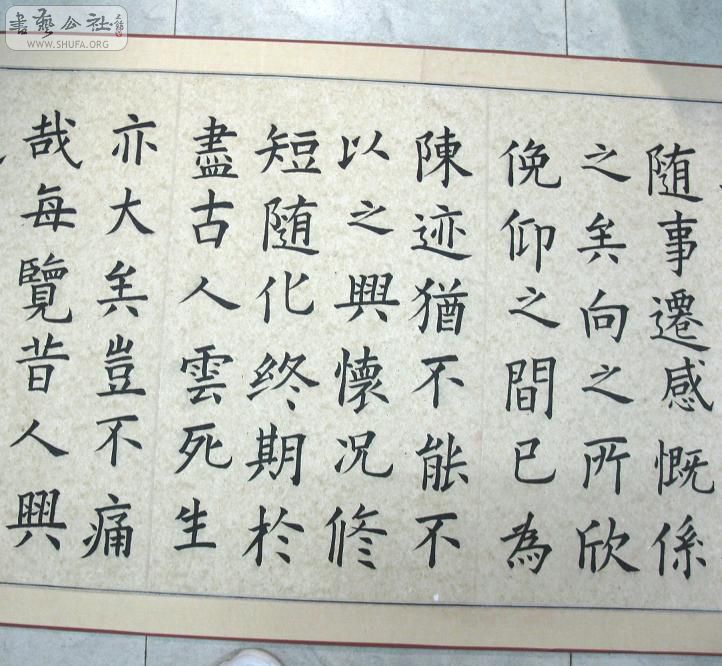 随事遷感慨係
之矣向之所欣
俛仰之間已為
陳迹猶不能不
以之興懷况修
短随化終期於
盡古人雲死生
亦大矣豈不痛
哉每覽昔人興
書藝公社
WWW.SHUFA.ORG